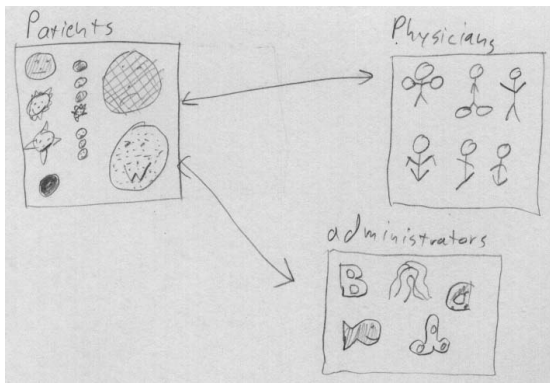 Patients
Physicians
W
administrators
B